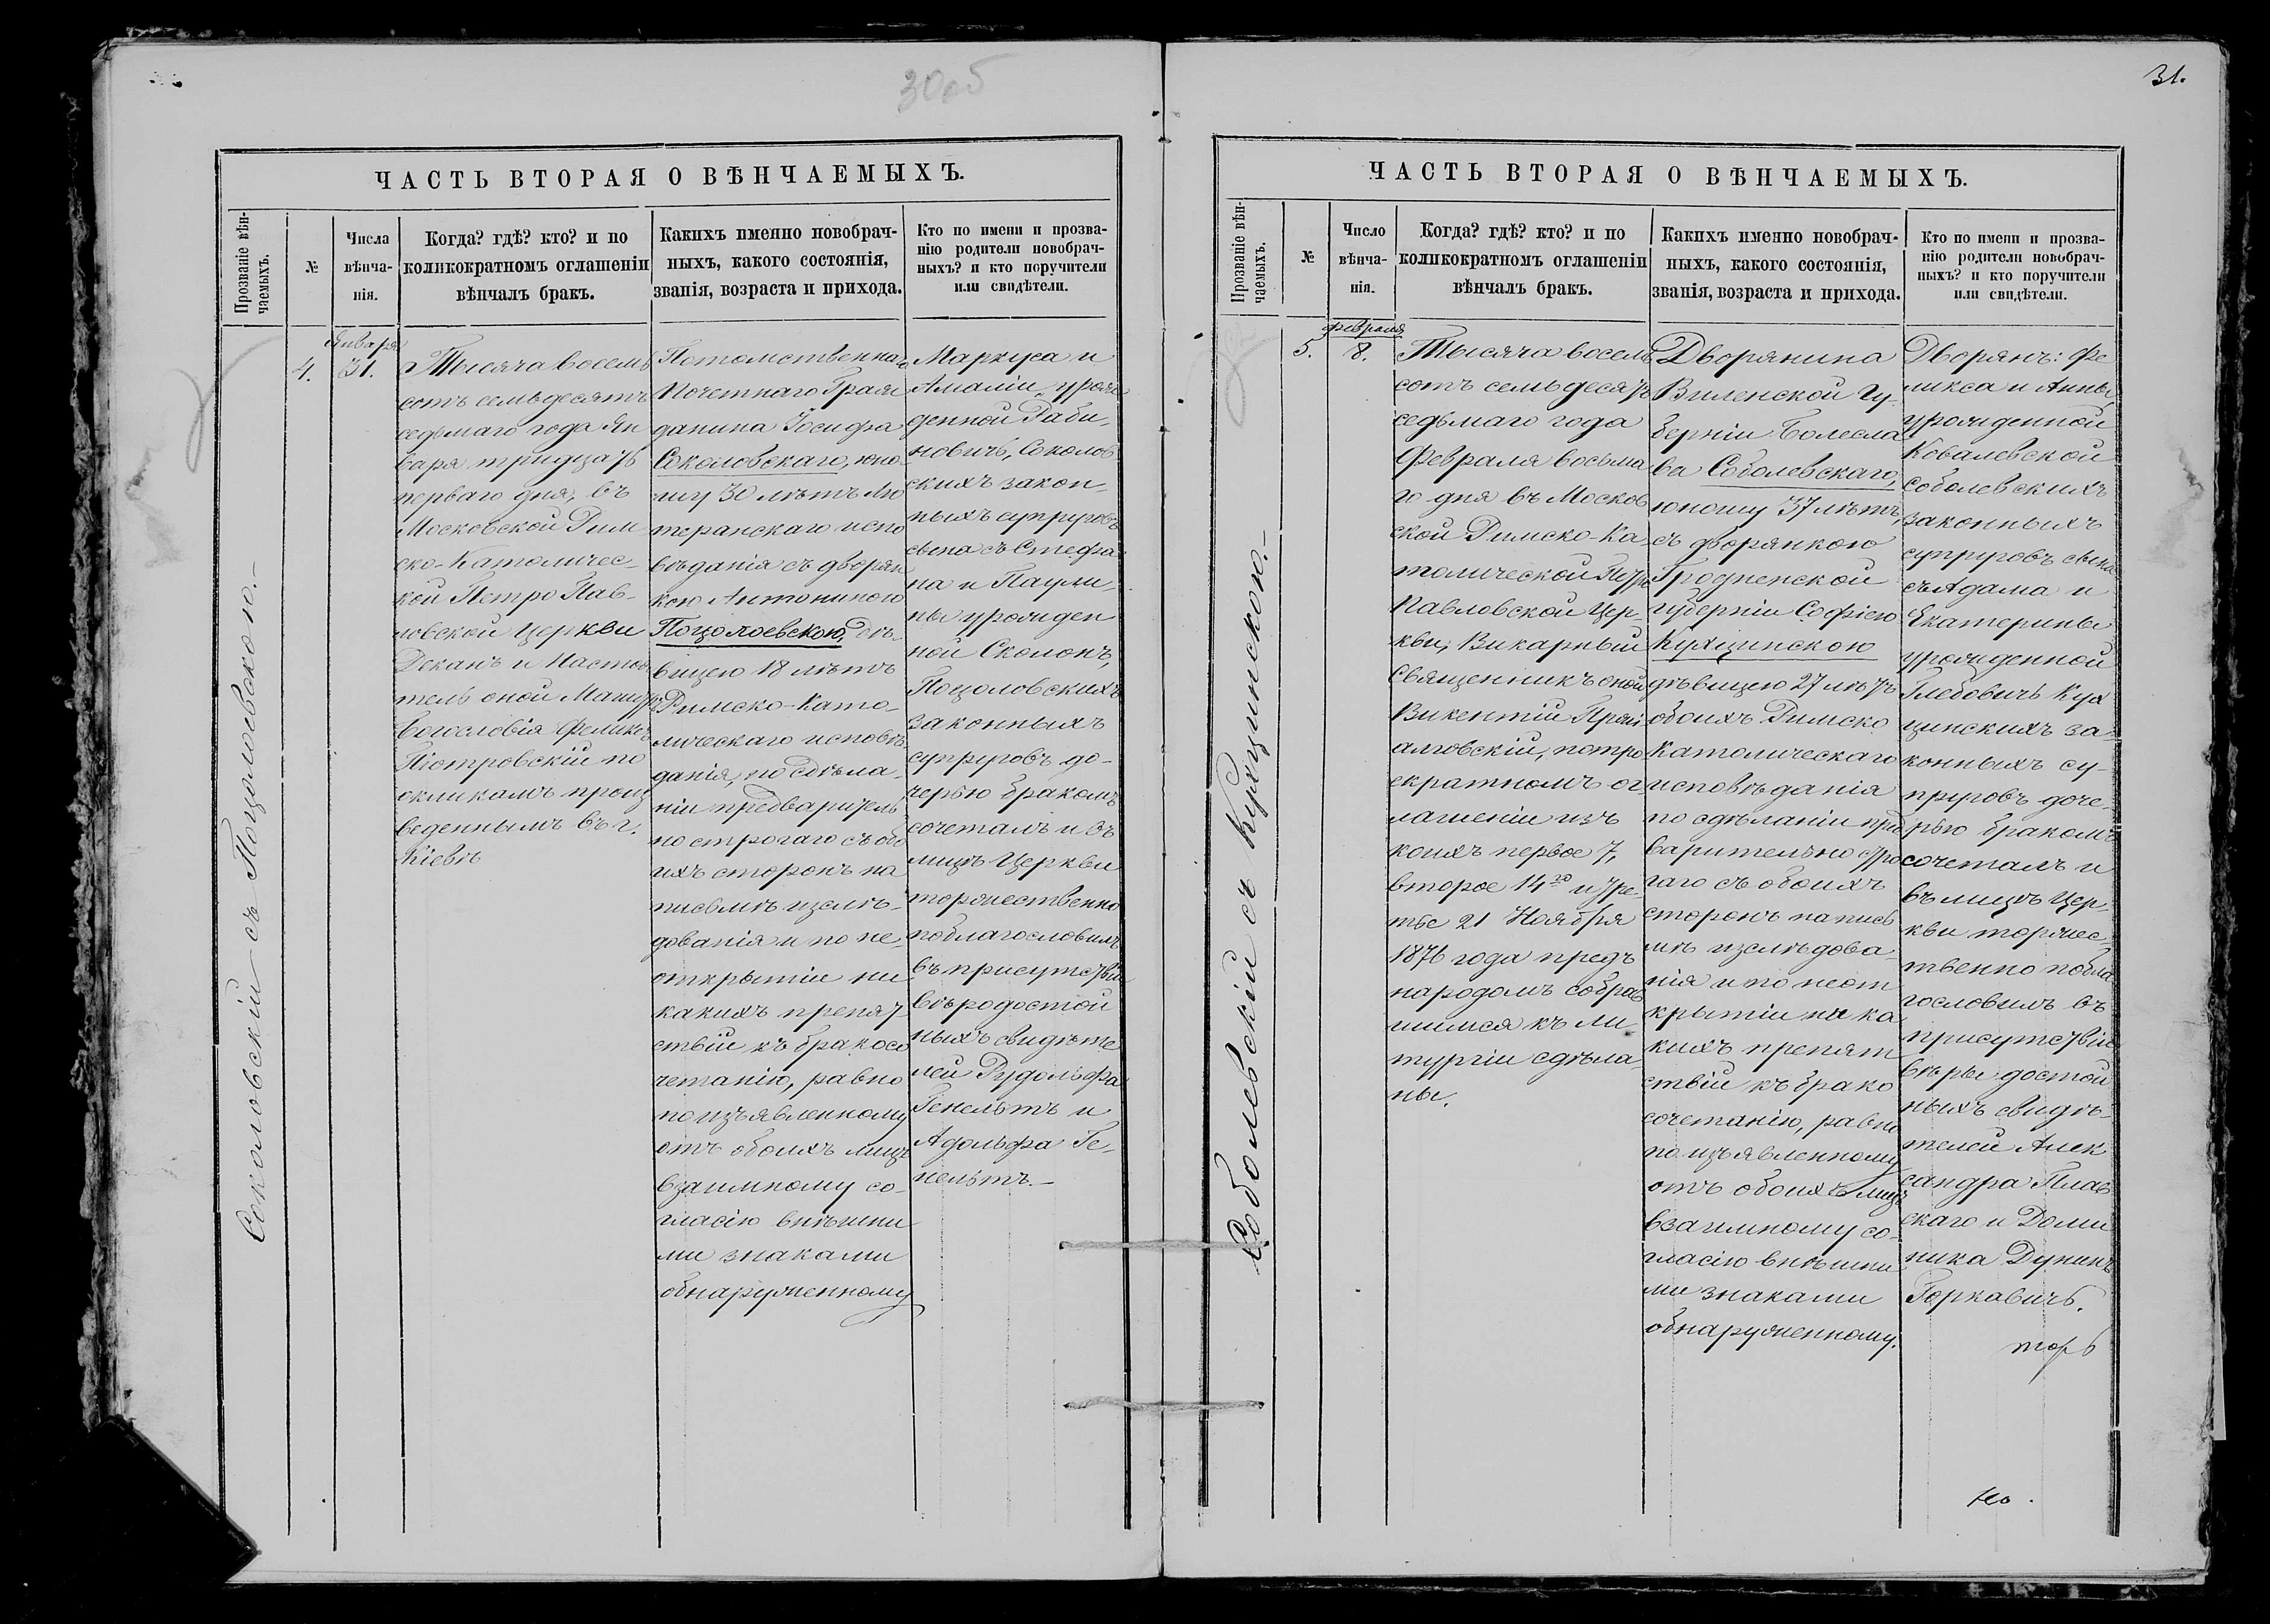 30об
ЧАСТЬ ВТОРАЯ О ВѢНЧАЕМЫХЪ.
Прозваніе вѣн-
чаемыхъ.
№
Числа
вѣнча-
нія.
Когда? гдѣ? кто? и по
коликократномъ оглашеніи
вѣнчалъ бракъ.
Какихъ именно новобрач-
ныхъ, какого состоянія,
званія, возраста и прихода.
Кто по имени и прозва-
нію родители новобрач-
ныхъ? и кто поручители
или свидѣтели.
Соколовскій съ Поцолоевскою.-
4.
Января
31.
Тысяча восемь
сотъ семьдесятъ
седьмаго года Ян
варя тридцать
перваго дня, въ
Московской Рим
ско-Католичес-
кой Петро Пав-
ловской Церкви
Деканъ и Настоя
тель оной Магистръ
Богословія Феликсъ
Піотровскій по
окликамъ произ
веденнымъ въ г.
Кіевѣ
Потомственнаго
Почетнаго Граж
данина Іосифа
Соколовскаго, юно-
шу 30 лѣтъ Лю
теранскаго испо
вѣданія съ дворян
кою Антониною
Поцолоевскою, дѣ-
вицею 18 лѣтъ
Римско-Като-
лическаго исповѣ
данія, по сдѣла-
ніи предваритель
но строгаго съ обо
ихъ сторонъ на
письмѣ изслѣ-
дованія и по не-
открытіи ни
какихъ препят
ствій къ бракосо
четанію, равно
по изъявленному
отъ обоихъ лицъ
взаимному со-
гласію внѣшни
ми знаками
обнаруженному
Маркуса и
Амаліи, урож
денной Раби-
новичъ, Соколов
скихъ закон-
ныхъ супруговъ
сына съ Стефа
на и Паули-
ны урожден
ной Сколонъ,
Поцоловскихъ
законныхъ
супруговъ до-
черью бракомъ
сочеталъ и въ
лицѣ Церкви
торжественно
поблагословилъ
въ присутствіи
вѣродостой
ныхъ свидѣте
лей Рудольфа
Генельтъ и
Адольфа Ге-
нельтъ.-
31.
ЧАСТЬ ВТОРАЯ О ВѢНЧАЕМЫХЪ.
Прозваніе вѣн-
чаемыхъ.
№
Число
вѣнча-
нія.
Когда? гдѣ? кто? и по
коликократномъ оглашеніи
вѣнчалъ бракъ.
Какихъ именно новобрач-
ныхъ, какого состоянія,
званія, возраста и прихода.
Кто по имени и прозва-
нію родители новобрач-
ныхъ? и кто поручители
или свидѣтели.
Соболевскій съ Кухцинскою.-
5.
Февраля
8.
Тысяча восемь
сотъ семьдесятъ
седьмаго года
Февраля восьма
го дня въ Москов
ской Римско-Ка
толической Петро
Павловской Цер-
кви, Викарный
Священникъ оной
Викентій
по тро
екратномъ ог
лашеніи изъ
коихъ первое 7,
второе 14го и тре-
тье 21 Ноября
1876 года предъ
народомъ собрав
шимся къ Ли
тургіи сдѣла-
ны.
Дворянина
Виленской Гу-
берніи Болесла
ва Соболевскаго,
юношу 37 лѣтъ,
съ дворянкою
Гродненской
губерніи Софіею
Кухцинскою
дѣвицею 27 лѣтъ
обоихъ Римско
Католическаго
исповѣданія
по сдѣланіи пред
варительно стро
гаго съ обоихъ
сторонъ на пись
мѣ изслѣдова-
нія и по неот
крытіи ни ка
кихъ препят
ствій къ брако
сочетанію, равно
по изъявленному
отъ обоихъ лицъ
взаимному со-
гласію внѣшни
ми знаками
обнаруженному.
Дворянъ: Фе
ликса и Анны,
урожденной
Ковалевской
Соболевскихъ
законныхъ
супруговъ сына
съ Адама и
Екатерины
урожденной
Глебовичъ Кух
цинскихъ за-
конныхъ су-
пруговъ доче-
рью бракомъ
сочеталъ и
въ лицѣ Цер-
кви торжес-
твенно побла
гословилъ въ
присутствіи
вѣры достой
ныхъ свидѣ-
телей Алек
сандра Плав
скаго и Доми
ника Дунинъ
Горкавичъ.